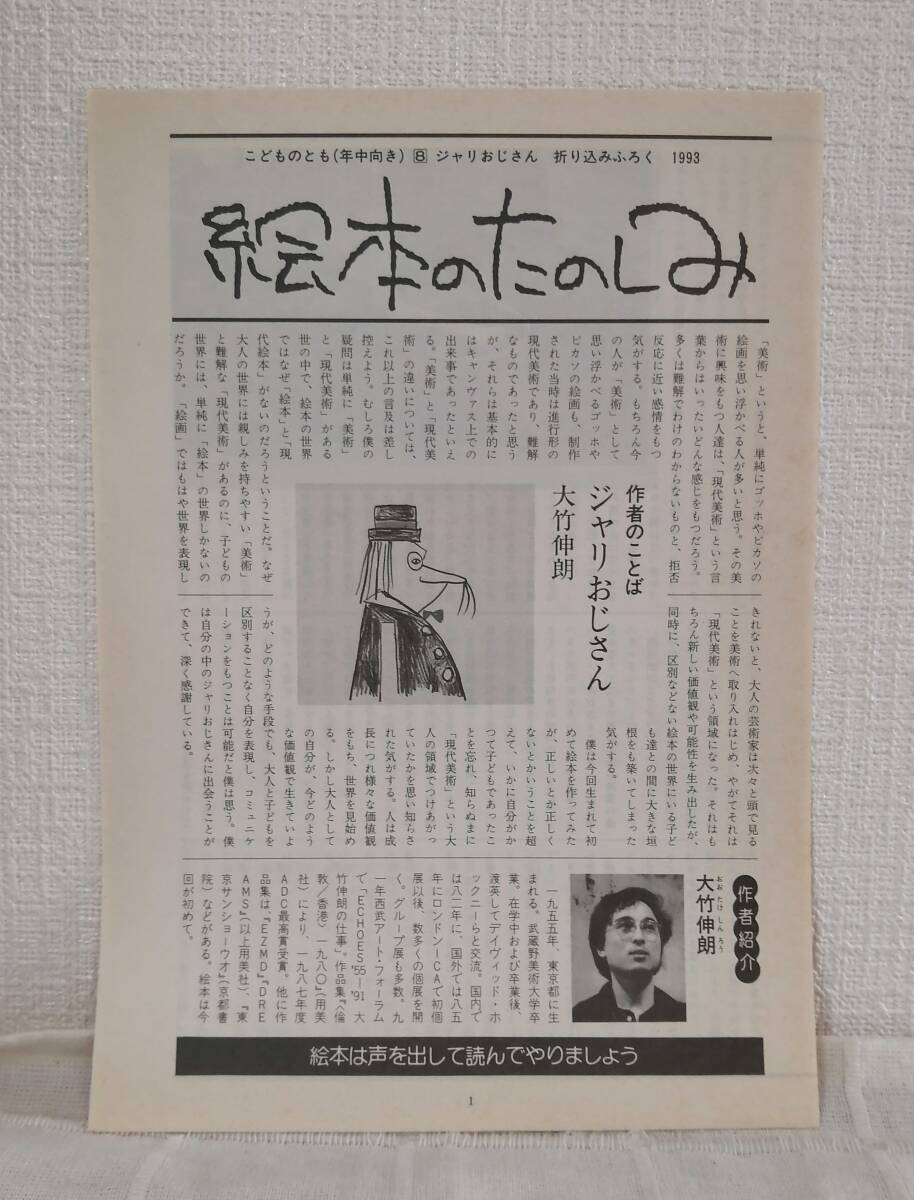 こどものとも(年中向き) 8 ジャリおじさん 折り込みふろく 1993
絵本のたのしみ
作者のことば
ジャリおじさん
大竹伸朗
「美術」というと、単純にゴッホやピカソの
絵画を思い浮かべる人が多いと思う。その美
術に興味をもつ人達は、「現代美術」という言
葉からはいったいどんな感じをもつだろう。
多くは難解でわけのわからないものと、拒否
反応に近い感情をもつ
気がする。もちろん今
の人が「美術」として
思い浮かべるゴッホや
ピカソの絵画も、制作
された当時は進行形の
現代美術であり、難解
なものであったと思う
が、それらは基本的に
はキャンヴァス上での
出来事であったといえ
る。「美術」と「現代美
術」の違いについては、
これ以上の言及は差し
控えよう。むしろ僕の
疑問は単純に「美術」
と「現代美術」がある
世の中で、絵本の世界
ではなぜ「絵本」と「現
代絵本」がないのだろうということだ。なぜ
大人の世界には親しみを持ちやすい「美術」
と難解な「現代美術」があるのに、子どもの
世界には、単純に「絵本」の世界しかないの
だろうか。「絵画」ではもはや世界を表現し
きれないと、大人の芸術家は次々と頭で見る
ことを美術へ取り入れはじめ、やがてそれは
「現代美術」という領域になった。それはも
ちろん新しい価値観や可能性を生み出したが、
同時に、区別などない絵本の世界にいる子ど
も達との間に大きな垣
根をも築いてしまった
気がする。
僕は今回生まれて初
めて絵本を作ってみた
が、正しいとか正しく
ないとかいうことを超
えて、いかに自分がか
つて子どもであったこ
とを忘れ、知らぬまに
「現代美術」という大
人の領域でつけあがっ
ていたかを思い知らさ
れた気がする。人は成
長につれ様々な価値観
をもち、世界を見始め
る。しかし大人として
の自分が、今どのよう
な価値観で生きていよ
うが、どのような手段でも、大人と子どもを
区別することなく自分を表現し、コミュニケ
ーションをもつことは可能だと僕は思う。僕
は自分の中のジャリおじさんに出会うことが
できて、深く感謝している。
作者紹介
大竹伸朗
おおたけしんろう
一九五五年、東京都に生
まれる。武蔵野美術大学卒
業。在学中および卒業後、
渡英してデイヴィッド・ホ
ックニーらと交流。国内で
は八二年に、国外では八五
年にロンドンICAで初個
展以後、数多くの個展を開
く。グループ展も多数。九
一年西武アート・フォーラム
で「ECHOES '55―'91 大
竹伸朗の仕事」。作品集『〈倫
敦/香港〉一九八〇』(用美
社)により、一九八七年度
ADC最高賞受賞。他に作
品集は『EZMD』『DRE
AMS』(以上用美社)、『東
京サンショーウオ』(京都書
院)などがある。絵本は今
回が初めて。
絵本は声を出して読んでやりましょう
1